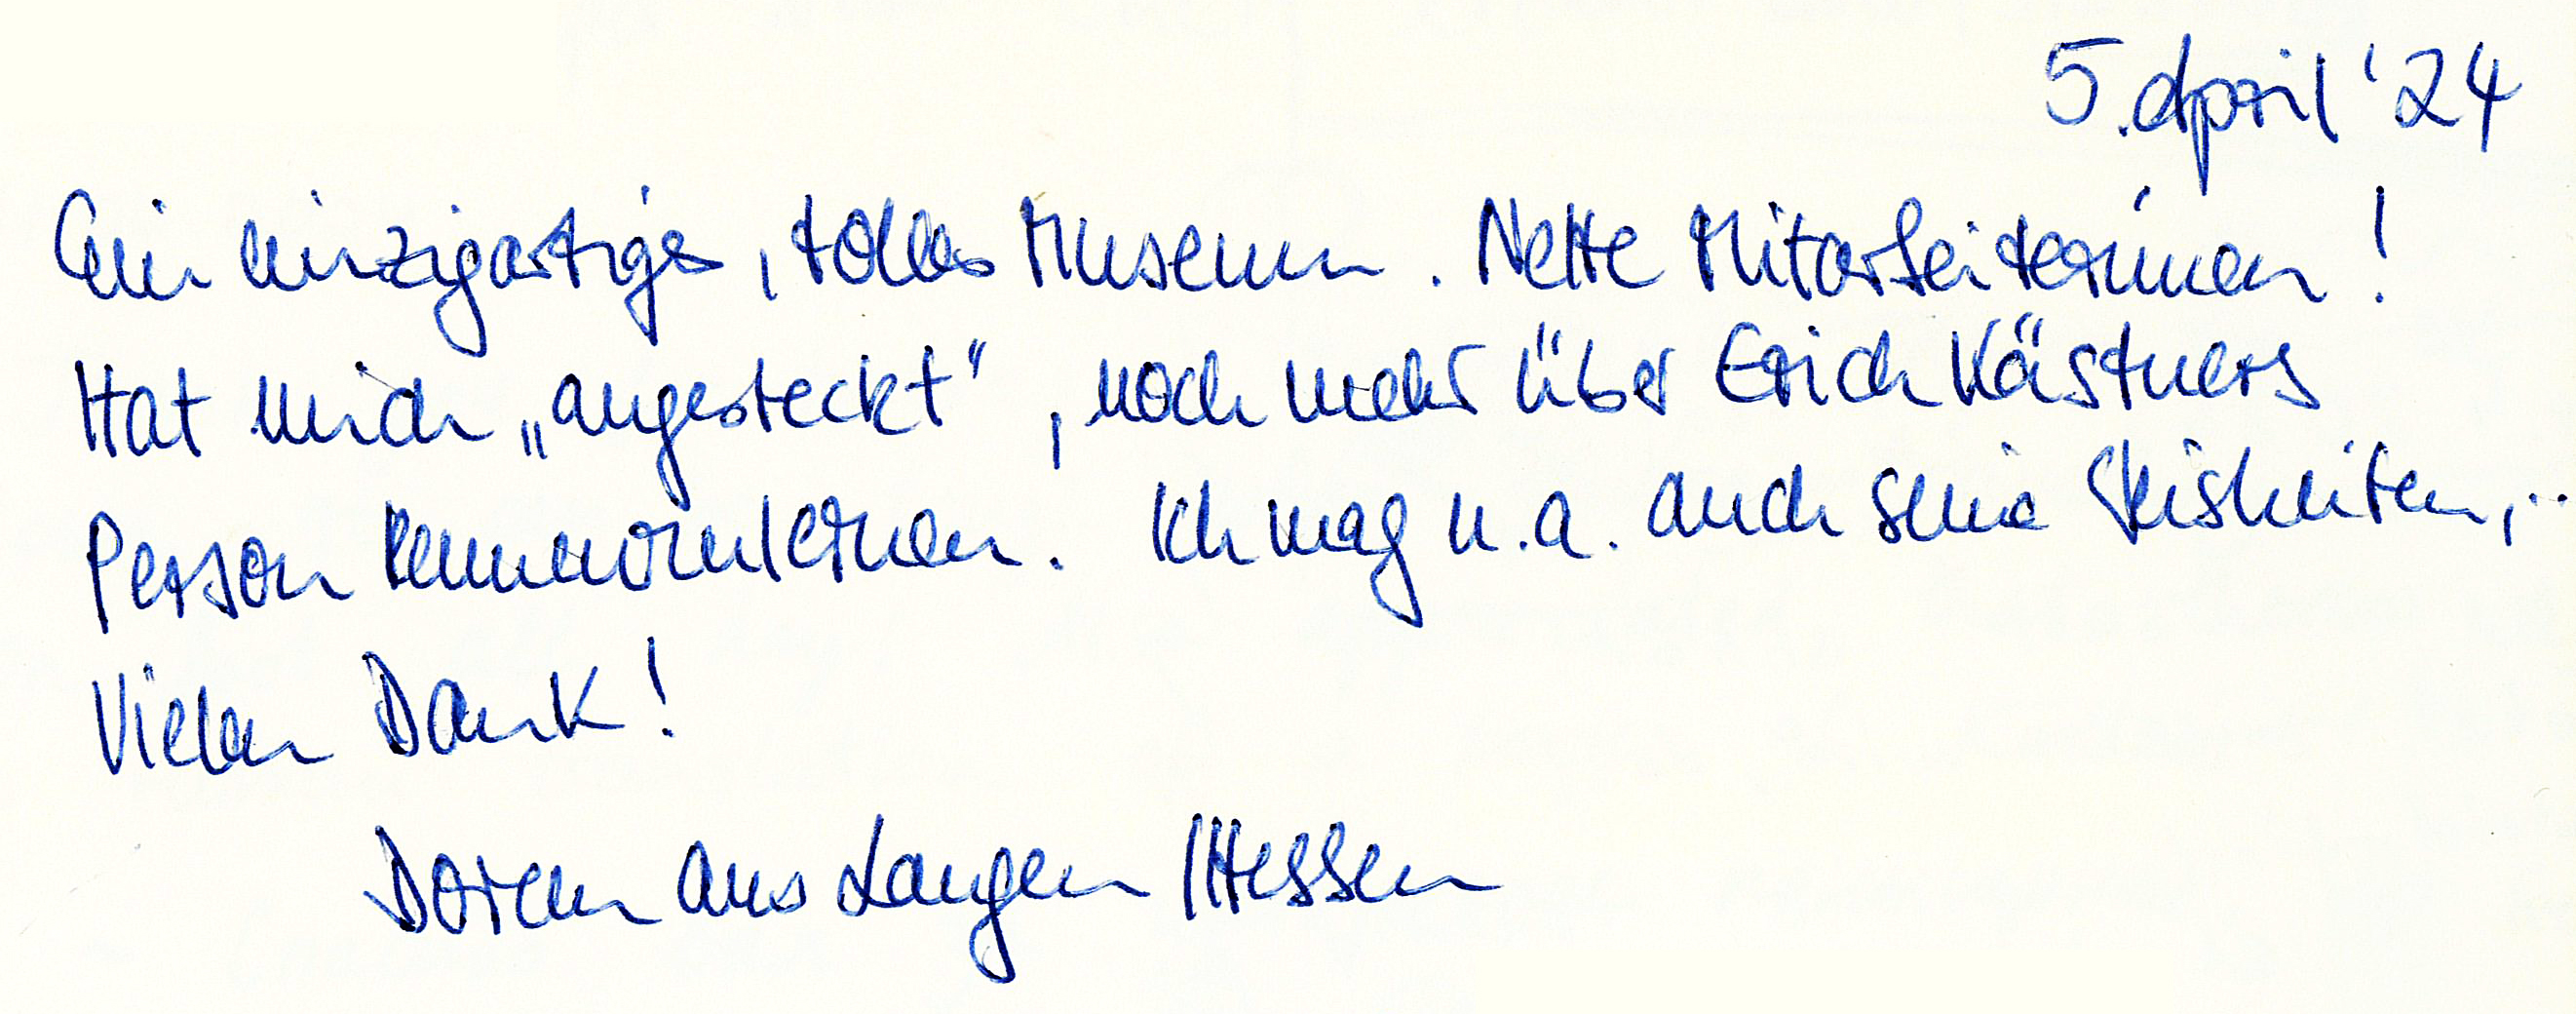 5. April '24
Ein einzigartiges, tolles Museum. Nette Mitarbeiterinnen!
Hat mich „angesteckt“, noch mehr über Erich Kästners
Person kennenzulernen. Ich mag u.a. auch seine Weisheiten,..
Vielen Dank!
Doreen aus Langen /Hessen